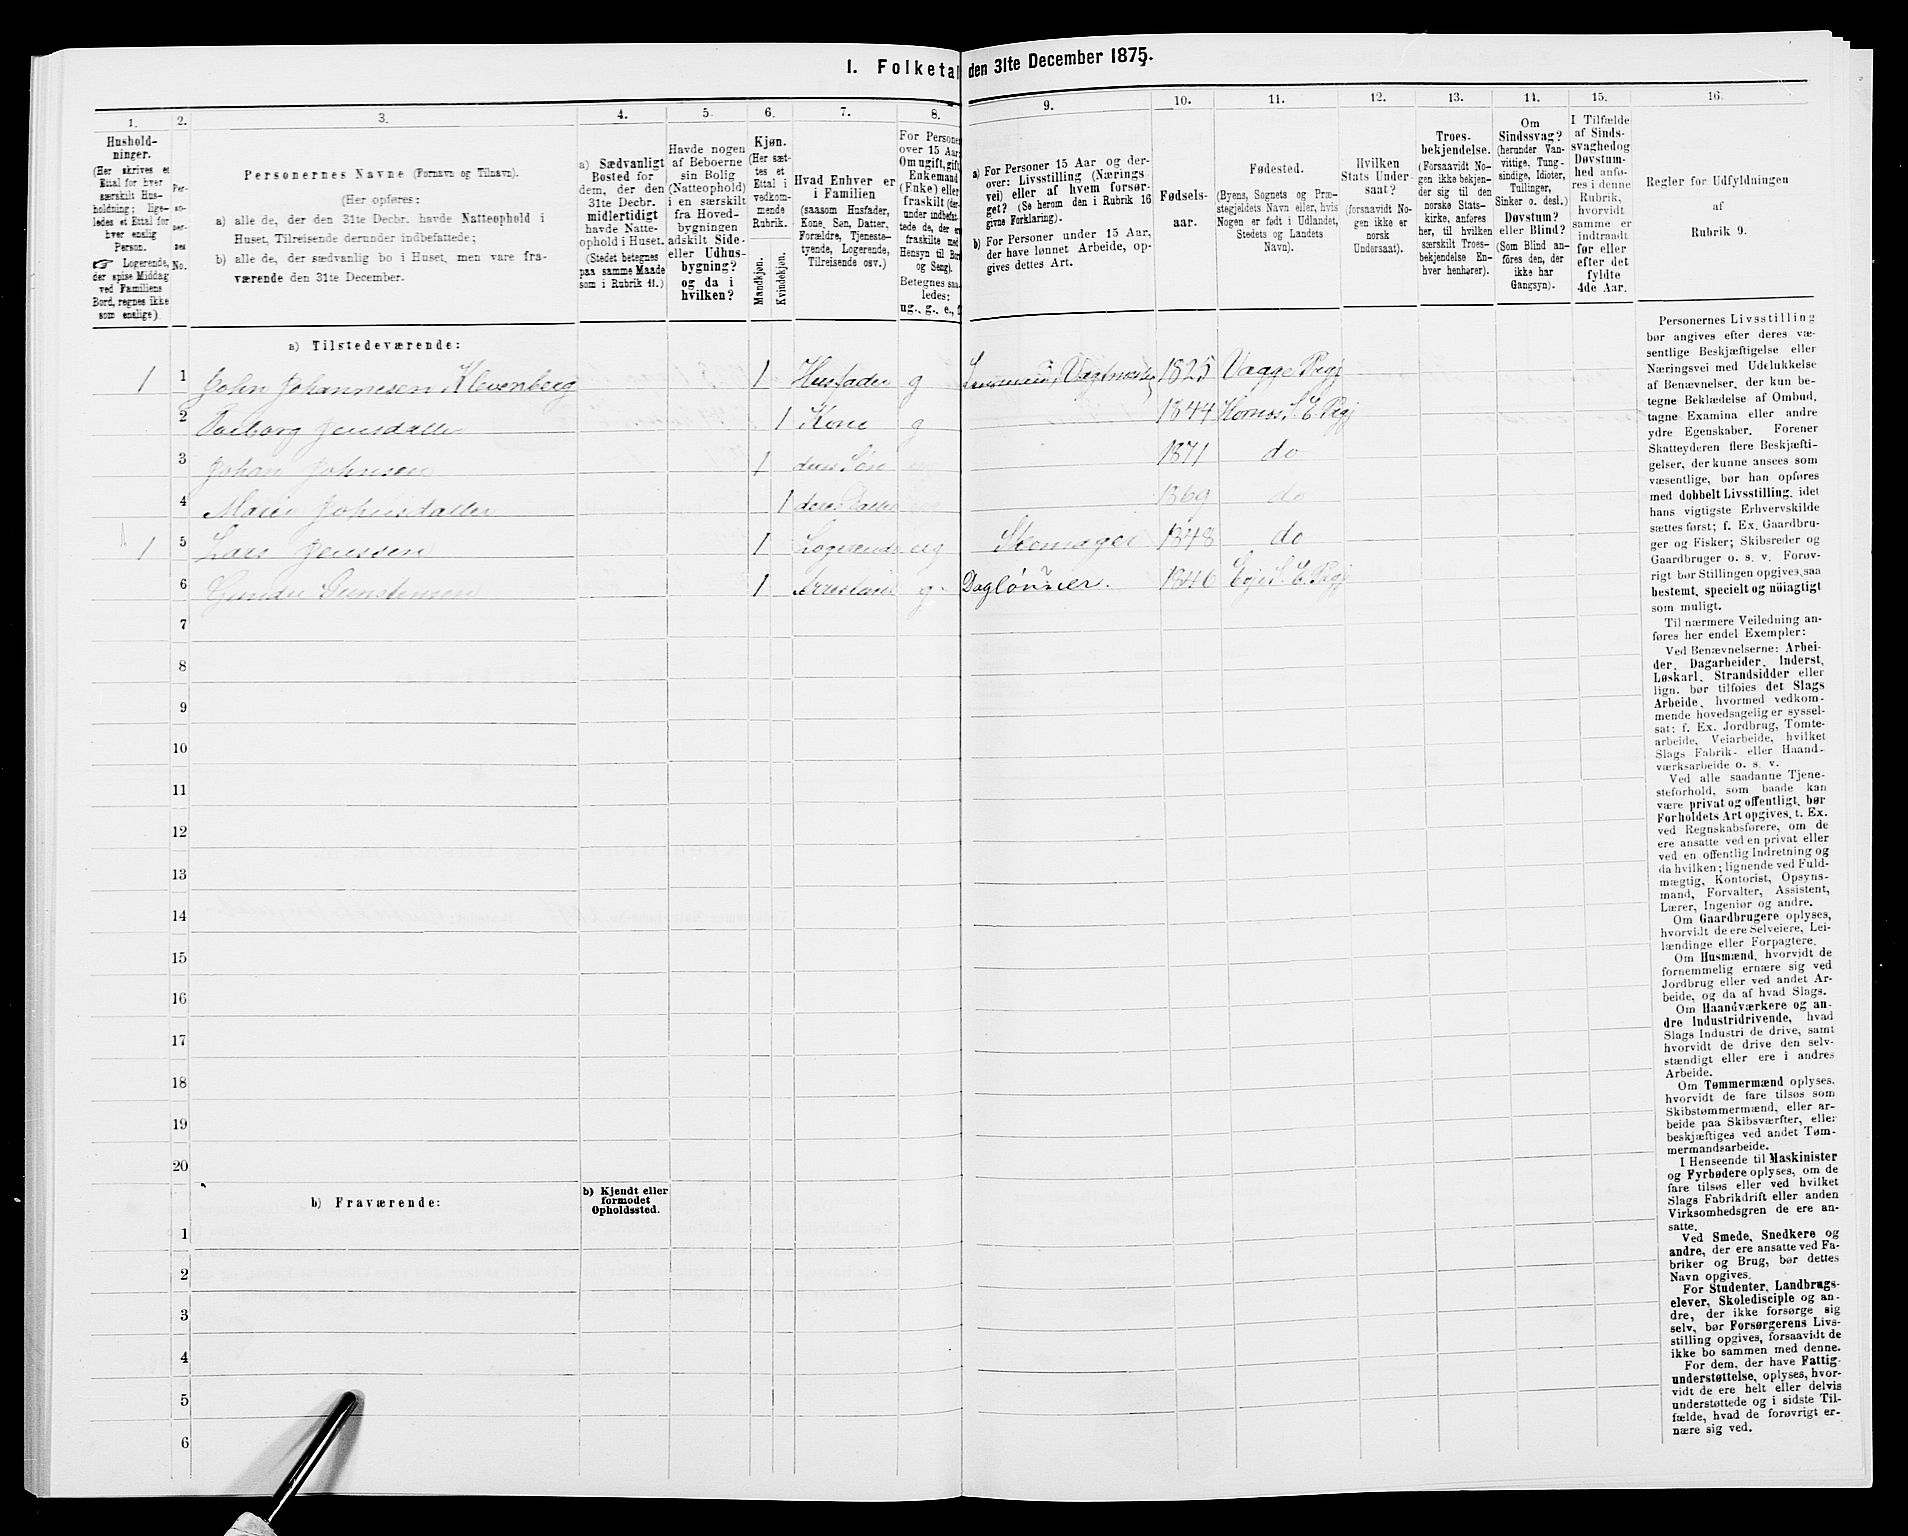 I. Folketal den 31te December 1875.
1.
Hushold-
ninger.
(Her skrives et
Ettal for hver
særskilt Hus-
holdning; lige-
ledes et Ettal for
hver enslig
Person.
☞ Logerende,
der spise Middag
ved Familiens
Bord, regnes ikke
som enslige).
2.
Per-
so-
ner-
nes
No.
3.
Personernes Navne (Fornavn og Tilnavn).
(Her opføres:
a) alle de, der den 31te Decbr. havde Natteophold i
Huset, Tilreisende derunder indbefattede;
b) alle de, der sædvanlig bo i Huset, men vare fra-
værende den 31te December.
4.
a) Sædvanligt
Bosted for
dem, der den
31te Decbr.
midlertidigt
havde Natte-
ophold i Huset.
(Stedet betegnes
paa samme Maade
som i Rubrik 11.)
5.
Havde nogen
af Beboerne
sin Bolig
(Natteophold)
i en særskilt
fra Hoved-
bygningen
adskilt Side-
eller Udhus-
bygning?
og da i
hvilken?
6.
Kjøn.
(Her sæt-
tes et
Ettal i
vedkom-
mende
Rubrik.
Mandkjøn.
Kvindekjøn.
7.
Hvad Enhver er
i Familien
(saasom Husfader,
Kone, Søn, Datter,
Forældre, Tjeneste-
tyende, Logerende,
Tilreisende osv.)
8.
For Personer
over 15 Aar:
Om ugift, gift,
Enkemand
(Enke) eller
fraskilt (der-
under indbefat-
tede de, der ere
fraskilte med
Hensyn til Bord
og Seng).
Betegnes saa-
ledes:
ug., g., e., f.
9.
a) For Personer 15 Aar og der-
over: Livsstilling (Nærings-
vei) eller af hvem forsør-
get? (Se herom den i Rubrik 16
givne Forklaring).
b) For Personer under 15 Aar,
der have lønnet Arbeide, op-
gives dettes Art.
10.
Fødsels-
aar.
11.
Fødested.
(Byens, Sognets og Præ-
stegjeldets Navn eller, hvis
Nogen er født i Udlandet,
Stedets og Landets
Navn).
12.
Hvilken
Stats Under-
saat?
(forsaavidt No-
gen ikke er
norsk
Undersaat).
13.
Troes-
bekjendelse.
(Forsaavidt No-
gen ikke bekjen-
der sig til den
norske Stats-
kirke, anføres
her, til hvilken
særskilt Troes-
bekjendelse En-
hver henhører).
14.
Om
Sindssvag?
(herunder Van-
vittige, Tung-
sindige, Idioter,
Tullinger,
Sinker o. desl.)
Døvstum?
eller Blind?
(Som Blind an-
føres den, der
ikke har
Gangsyn).
15.
I Tilfælde
af Sinds-
svaghed og
Døvstum-
hed anfø-
res i denne
Rubrik,
hvorvidt
samme er
indtraadt
før eller
efter det
fyldte
4de Aar.
16.
Regler for Udfyldningen
af
Rubrik 9.
a) Tilstedeværende:
1 1 John Johannesen Klevenberg 1 Husfader g Vagtmester 1825 Vaage Prgj
2 Jensdatter 1 Kone g 1844 S. E. Prgj
3 Johan Johnsen 1 deres Søn 1871 do
4 Johnsdatter 1 deres Datter 1869 do
1 5 Lars Jenssen 1 Logerende ug Skomager 1848 do
6 1 Arrestant g. Daglønner. 1846 Eje S. E. Prgj
7
8
9
10
11
12
13
14
15
16
17
18
19
20
b) Fraværende:
b) Kjendt eller
formodet
Opholdssted.
1
2
3
4
5
6
Personernes Livsstilling
bør angives efter deres væ-
sentlige Beskjæftigelse eller
Næringsvei med Udelukkelse
af Benævnelser, der kun be-
tegne Beklædelse af Ombud,
tagne Examina eller andre
ydre Egenskaber. Forener
Skatteyderen flere Beskjæfti-
gelser, der kunne ansees som
væsentlige, bør han opføres
med dobbelt Livsstilling, idet
hans vigtigste Erhvervskilde
sættes først; f. Ex. Gaardbru-
ger og Fisker; Skibsreder og
Gaardbruger o. s. v. Forøv-
rigt bør Stillingen opgives, saa
bestemt, specielt og nöiagtigt
som muligt.
Til nærmere Veiledning an-
føres her endel Exempler:
Ved Benævnelserne: Arbei-
der, Dagarbeider, Inderst,
Løskarl, Strandsidder eller
lign. bør tilføies det Slags
Arbeide, hvormed vedkom-
mende hovedsagelig er syssel-
sat; f. Ex. Jordbrug, Tomte-
arbeide, Veiarbeide, hvilket
Slags Fabrik- eller Haand-
værksarbeide o. s. v.
Ved alle saadanne Tjene-
steforhold, som baade kan
være privat og offentligt, bør
Forholdets Art opgives, t. Ex.
ved Regnskabsførere, om de
ere ansatte ved en privat eller
ved en offentlig Indretning og
da hvilken; lignende ved Fuld-
mægtig, Kontorist, Opsyns-
mand, Forvalter, Assistent,
Lærer, Ingeniør og andre.
Om Gaardbrugere oplyses,
hvorvidt de ere Selveiere, Lei-
lændinge eller Forpagtere.
Om Husmænd, hvorvidt de
fornemmelig ernære sig ved
Jordbrug eller ved andet Ar-
beide, og da af hvad Slags.
Om Haandværkere og an-
dre Industridrivende, hvad
Slags Industri de drive, samt
hvorvidt de drive den selv-
stændigt eller ere i andres
Arbeide.
Om Tømmermænd oplyses,
hvorvidt de fare tilsøs som
Skibstømmermænd, eller ar-
beide paa Skibsværfter, eller
beskjæftiges ved andet Tøm-
mermandsarbeide.
I Henseende til Maskinister
og Fyrbødere oplyses, om de
fare tilsøs eller ved hvilket
Slags Fabrikdrift eller anden
Virksomhedsgren de ere an-
satte.
Ved Smede, Snedkere og
andre, der ere ansatte ved Fa-
briker og Brug, bør dettes
Navn opgives.
For Studenter, Landbrugs-
elever, Skoledisciple og an-
dre, der ikke forsørge sig
selv, bør Forsørgerens Livs-
stilling opgives, forsaavidt de
ikke bo sammen med denne.
For dem, der have Fattig-
understøttelse, oplyses, hvor-
vidt de ere helt eller delvis
understøttede og i sidste Til-
fælde, hvad de forøvrigt er-
nære sig ved.